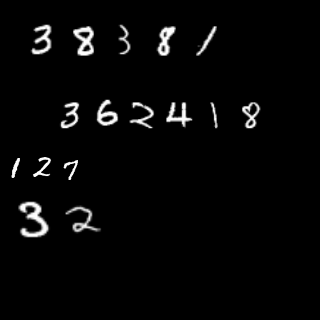 3 8 3 8 1
3 6 2 4 1 8
1 2 7
3 2